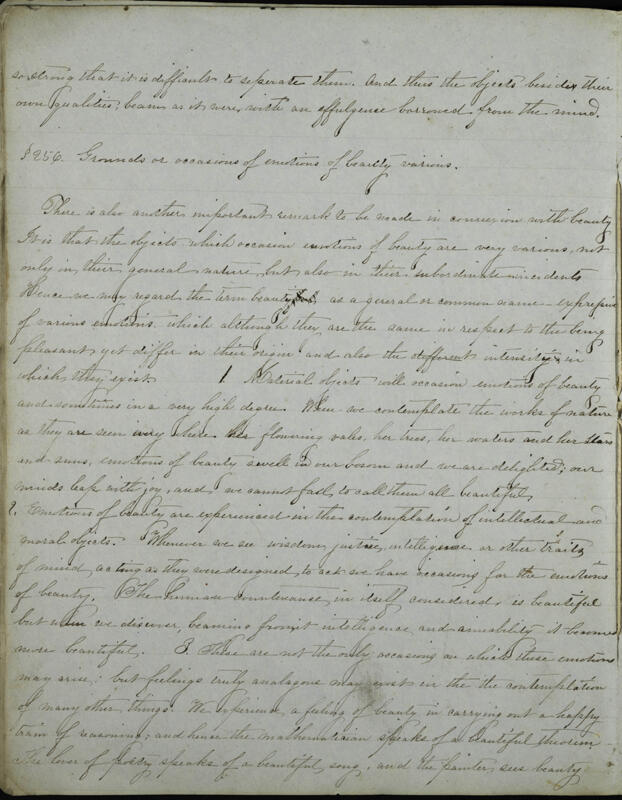 so strong that it is difficult to seperate them. And thus the objects besides their
own qualities; beam as it were, with an effulgence borrowed from the mind.
§ 256. Grounds or occasions of emotions of beauty various.
There is also another important remark to be made in connexion with beauty
It is that the objects which occasion emotions of beauty are very various, not
only in their general nature, but also in their subordinate incidents
Hence we may regard the term beauty as a general or common name expressive
of various emotions. which although they are the same in respect to the being
pleasant yet differ in their origin and also the different intensity in
which they exist 1. Material objects will occasion emotions of beauty
and sometimes in a very high degree. When we contemplate the works of nature
as they are seen every where her flowering vales, her trees, her waters and her stars
and suns, emotions of beauty swell in our bosom and we are delighted; our
minds leap with joy, and we cannot fail to call them all beautiful.
2. Emotions of beauty are experienced in the contemplation of intellectual and
moral objects. Whenever we see wisdom, justice, intelligence or other traits
of mind, acting as they were designed to act we have occasions for the emotions
of beauty. The human countenance, in itself considered, is beautiful
but when we discover, beaming from it intelligence and amability it becomes
more beautiful. 3. These are not the only occasions on which these emotions
may arise: but feelings truly analagous may exist in the the contemplation
of many other things. We experience a feeling of beauty in carrying out a happy
train of reasoning; and hence the mathematician speaks of a beautiful theorem
The lover of poetry speaks of a beautiful song, and the painter sees beauty